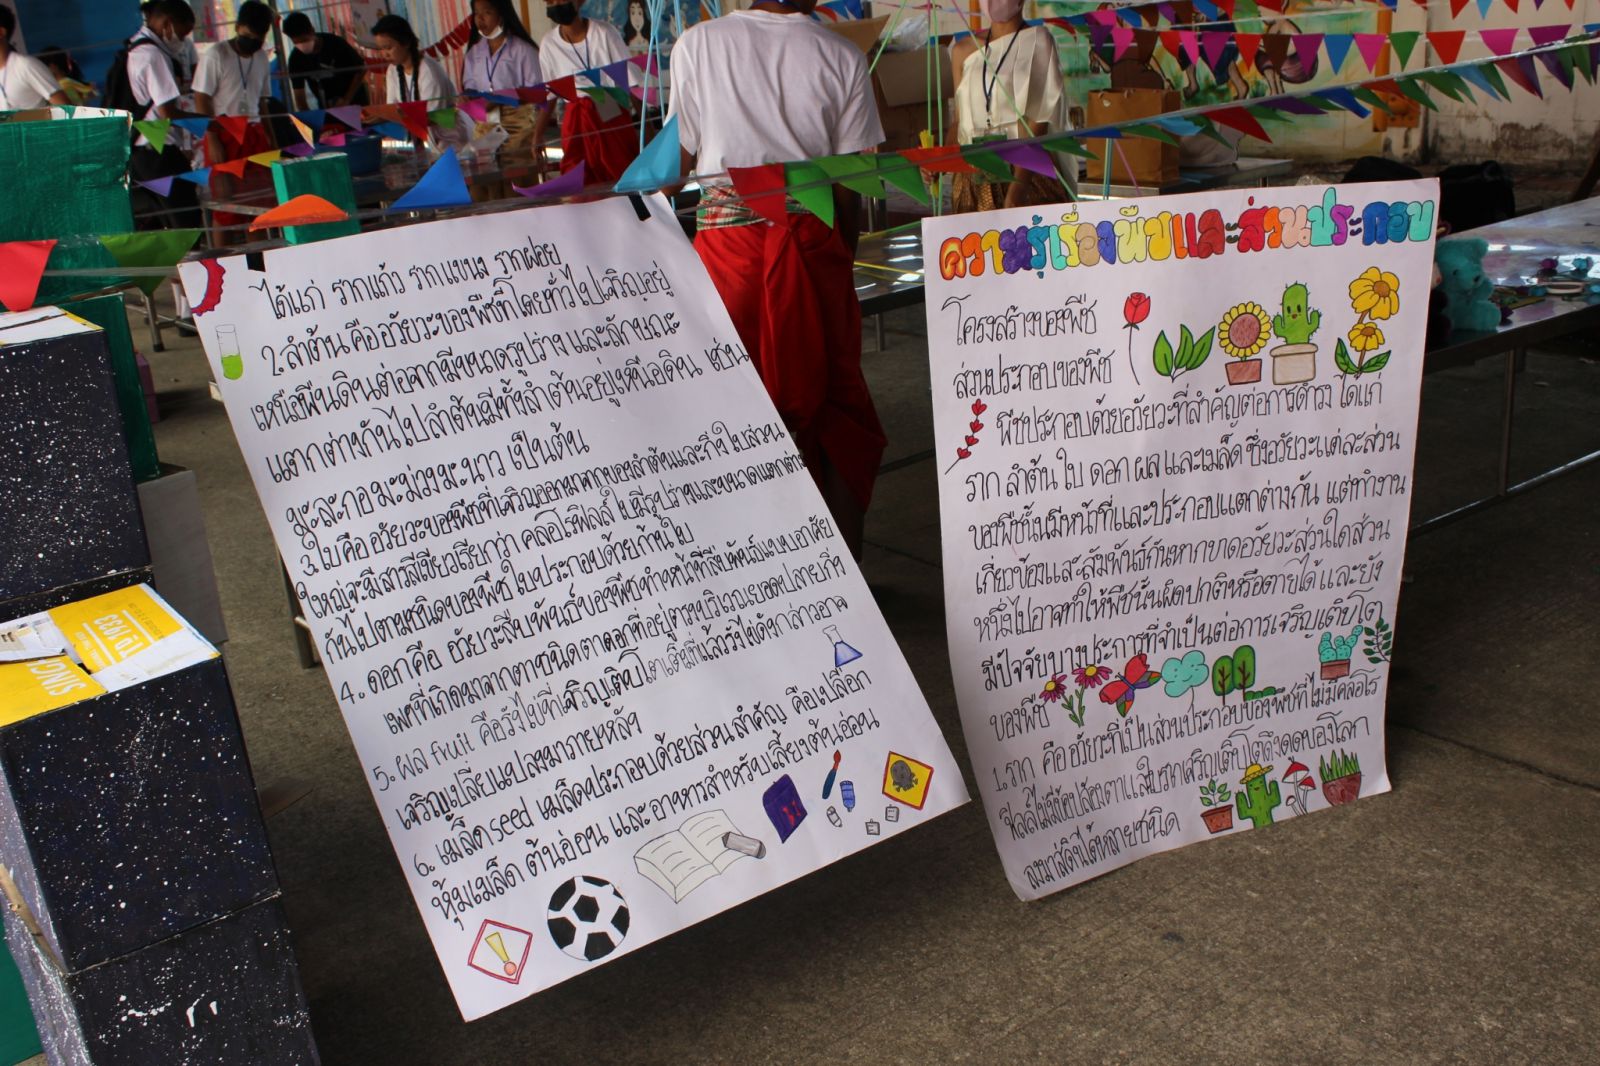 ความรู้เรื่องพืชและส่วนประกอบ
โครงสร้างของพืช
ส่วนประกอบของพืช
พืชประกอบด้วยอวัยวะที่สำคัญต่อการดำรง ได้แก่
ราก ลำต้น ใบ ดอก ผล และเมล็ด ซึ่งอวัยวะแต่ละส่วน
ของพืชนั้นมีหน้าที่และประกอบแตกต่างกัน แต่ทำงาน
เกี่ยวข้องและสัมพันธ์กันหากขาดอวัยวะส่วนใดส่วน
หนึ่งไปอาจทำให้พืชนั้นผิดปกติหรือตายได้ และยัง
มีปัจจัยบางประการที่จำเป็นต่อการเจริญเติบโต
ของพืช
1.ราก คือ อวัยวะที่เป็นส่วนประกอบของพืชที่ไม่มีคลอโร
ฟิลล์ไม่มีข้อปล้องตาและใบรากเจริญเติบโตดึงดูดของโลก
ลงมาสู่ดินได้หลายชนิด
ได้แก่ รากแก้ว รากแขนง รากฝอย
2.ลำต้น คืออวัยวะของพืชที่โดยทั่วไปเจริญอยู่
เหนือพื้นดินต่อจากมีขนาดรูปร่าง และลักษณะ
แตกต่างกันไปลำต้นมีทั้งลำต้นอยู่เหนือดิน เช่น
มะละกอมะม่วงมะนาว เป็นต้น
3.ใบคือ อวัยวะของพืชที่เจริญออกมาจากของลำต้นและกิ่งใบส่วน
ใหญ่จะมีสารสีเขียวเรียกว่า คลอโรฟิลล์ ใบมีรูปร่างและขนาดแตกต่าง
กันไปตามชนิดของพืช ใบประกอบด้วยก้านใบ
4. ดอกคือ อวัยวะสืบพันธ์ของพืชทำหน้าที่สืบพันธ์แบบอาศัย
เพศที่เกิดมาจากตาชนิดตาดอกที่อยู่ตรงบริเวณยอดปลายกิ่ง
5. ผล fruit คือรังไข่ที่เจริญเติบโตเต็มที่แล้วรังไข่ดังกล่าวอาจ
เจริญเปลี่ยนแปลงมาภายหลัง
6. เมล็ด seed เมล็ดประกอบด้วยส่วนสำคัญ คือเปลือก
หุ้มเมล็ด ต้นอ่อน และอาหารสำหรับเลี้ยงต้นอ่อน